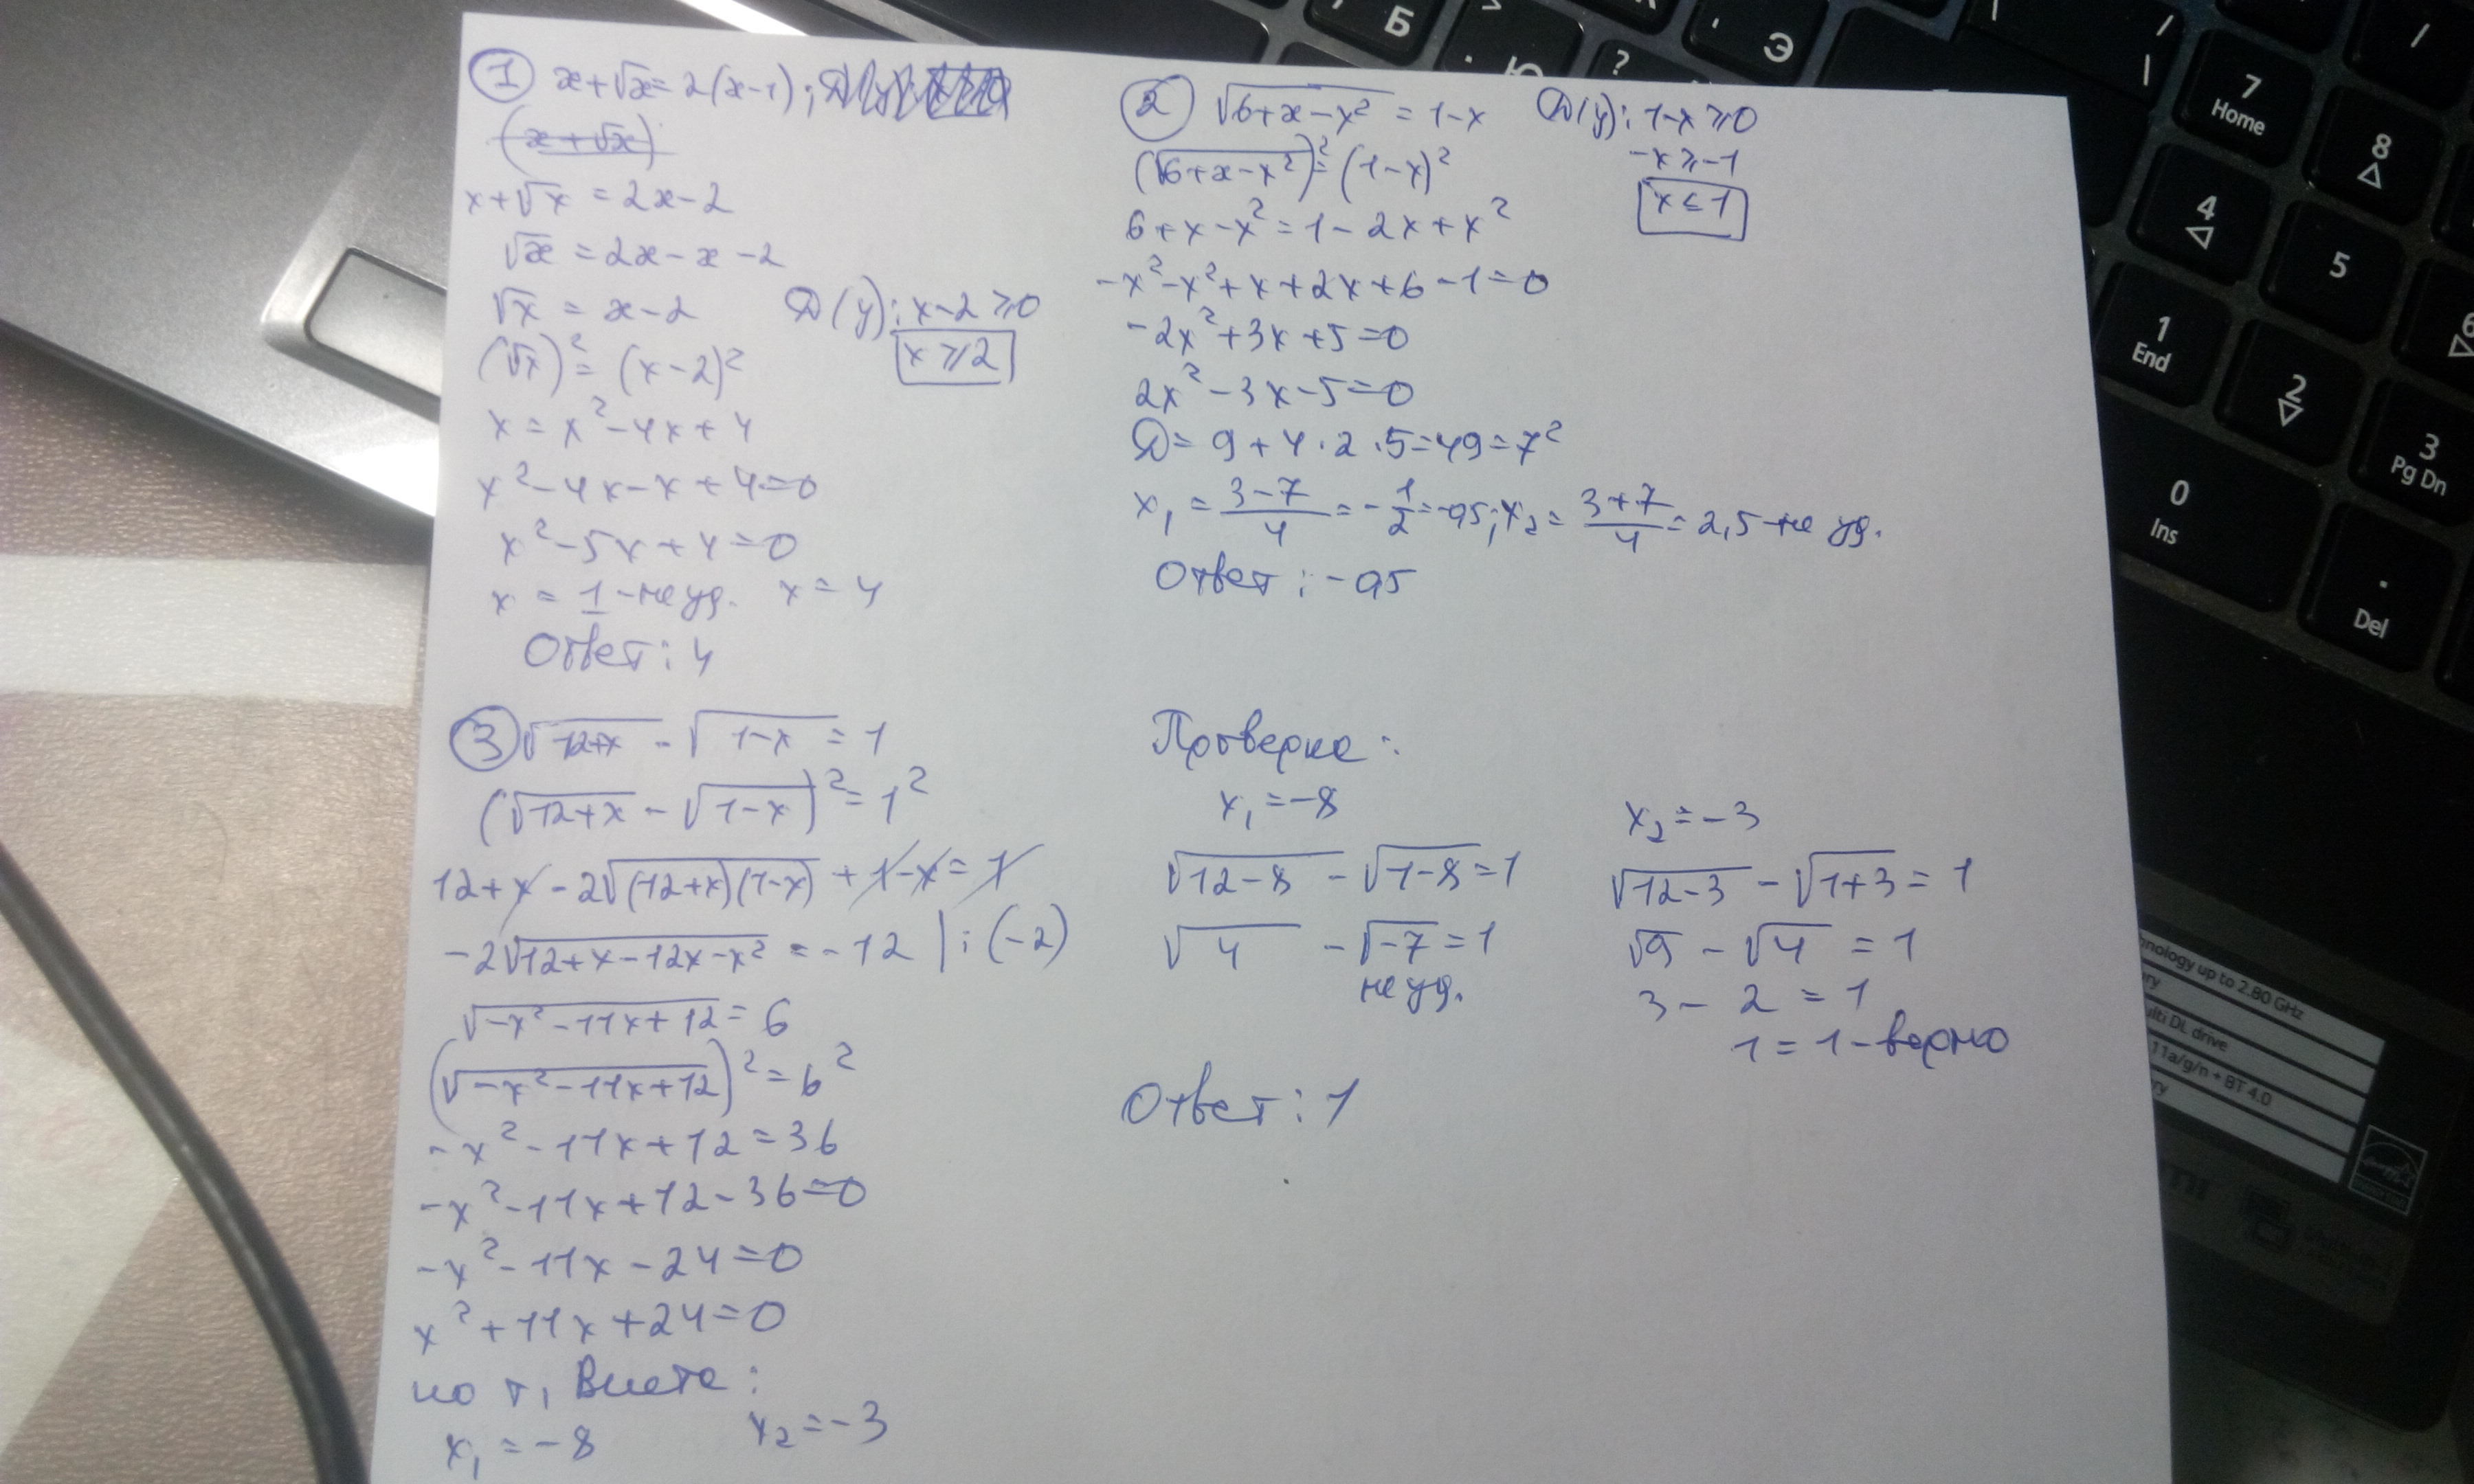 ① x+√x = 2(x-1);
(x+√x)
x+√x = 2x-2
√x = 2x-x-2
√x = x-2 D(y): x-2 ⩾0
x ⩾2
(√x)² = (x-2)²
x = x²-4x+4
x²-4x-x+4=0
x²-5x+4=0
x = 1 -не уд. x=4
Ответ: 4
② √6+x-x² = 1-x D(y): 1-x ⩾0
-x ⩾ -1
x ⩽ 1
(√6+x-x²)² = (1-x)²
6+x-x² = 1-2x+x²
-x²-x²+x+2x+6-1=0
-2x²+3x+5=0
2x²-3x-5=0
D = 9+4·2·5=49=7²
x₁ = 3-7/4 = -1/2 = -0,5; x₂ = 3+7/4 = 2,5 не уд.
Ответ: -0,5
③ √12+x - √1-x = 1
(√12+x - √1-x)² = 1²
12+x - 2√(12+x)(1-x) + 1-x = 1
-2√12+x-12x-x² = -12 | : (-2)
√-x²-11x+12 = 6
(√-x²-11x+12)² = 6²
-x²-11x+12=36
-x²-11x+12-36=0
-x²-11x-24=0
x²+11x+24=0
по т, Виета:
x₁ = -8 x₂ = -3
Проверка:
x₁ = -8
√12-8 - √1-8 = 1
√4 - √-7 = 1
не уд.
x₂ = -3
√12-3 - √1+3 = 1
√9 - √4 = 1
3 - 2 = 1
1 = 1 -верно
Ответ: 1
Б
Ю
?
Э
/
\
7
Home
8
4
5
6
1
End
2
3
Pg Dn
0
Ins
.
Del
nology up to 2.80 GHz
ry
ulti DL drive
11a/g/n + BT 4.0
ry